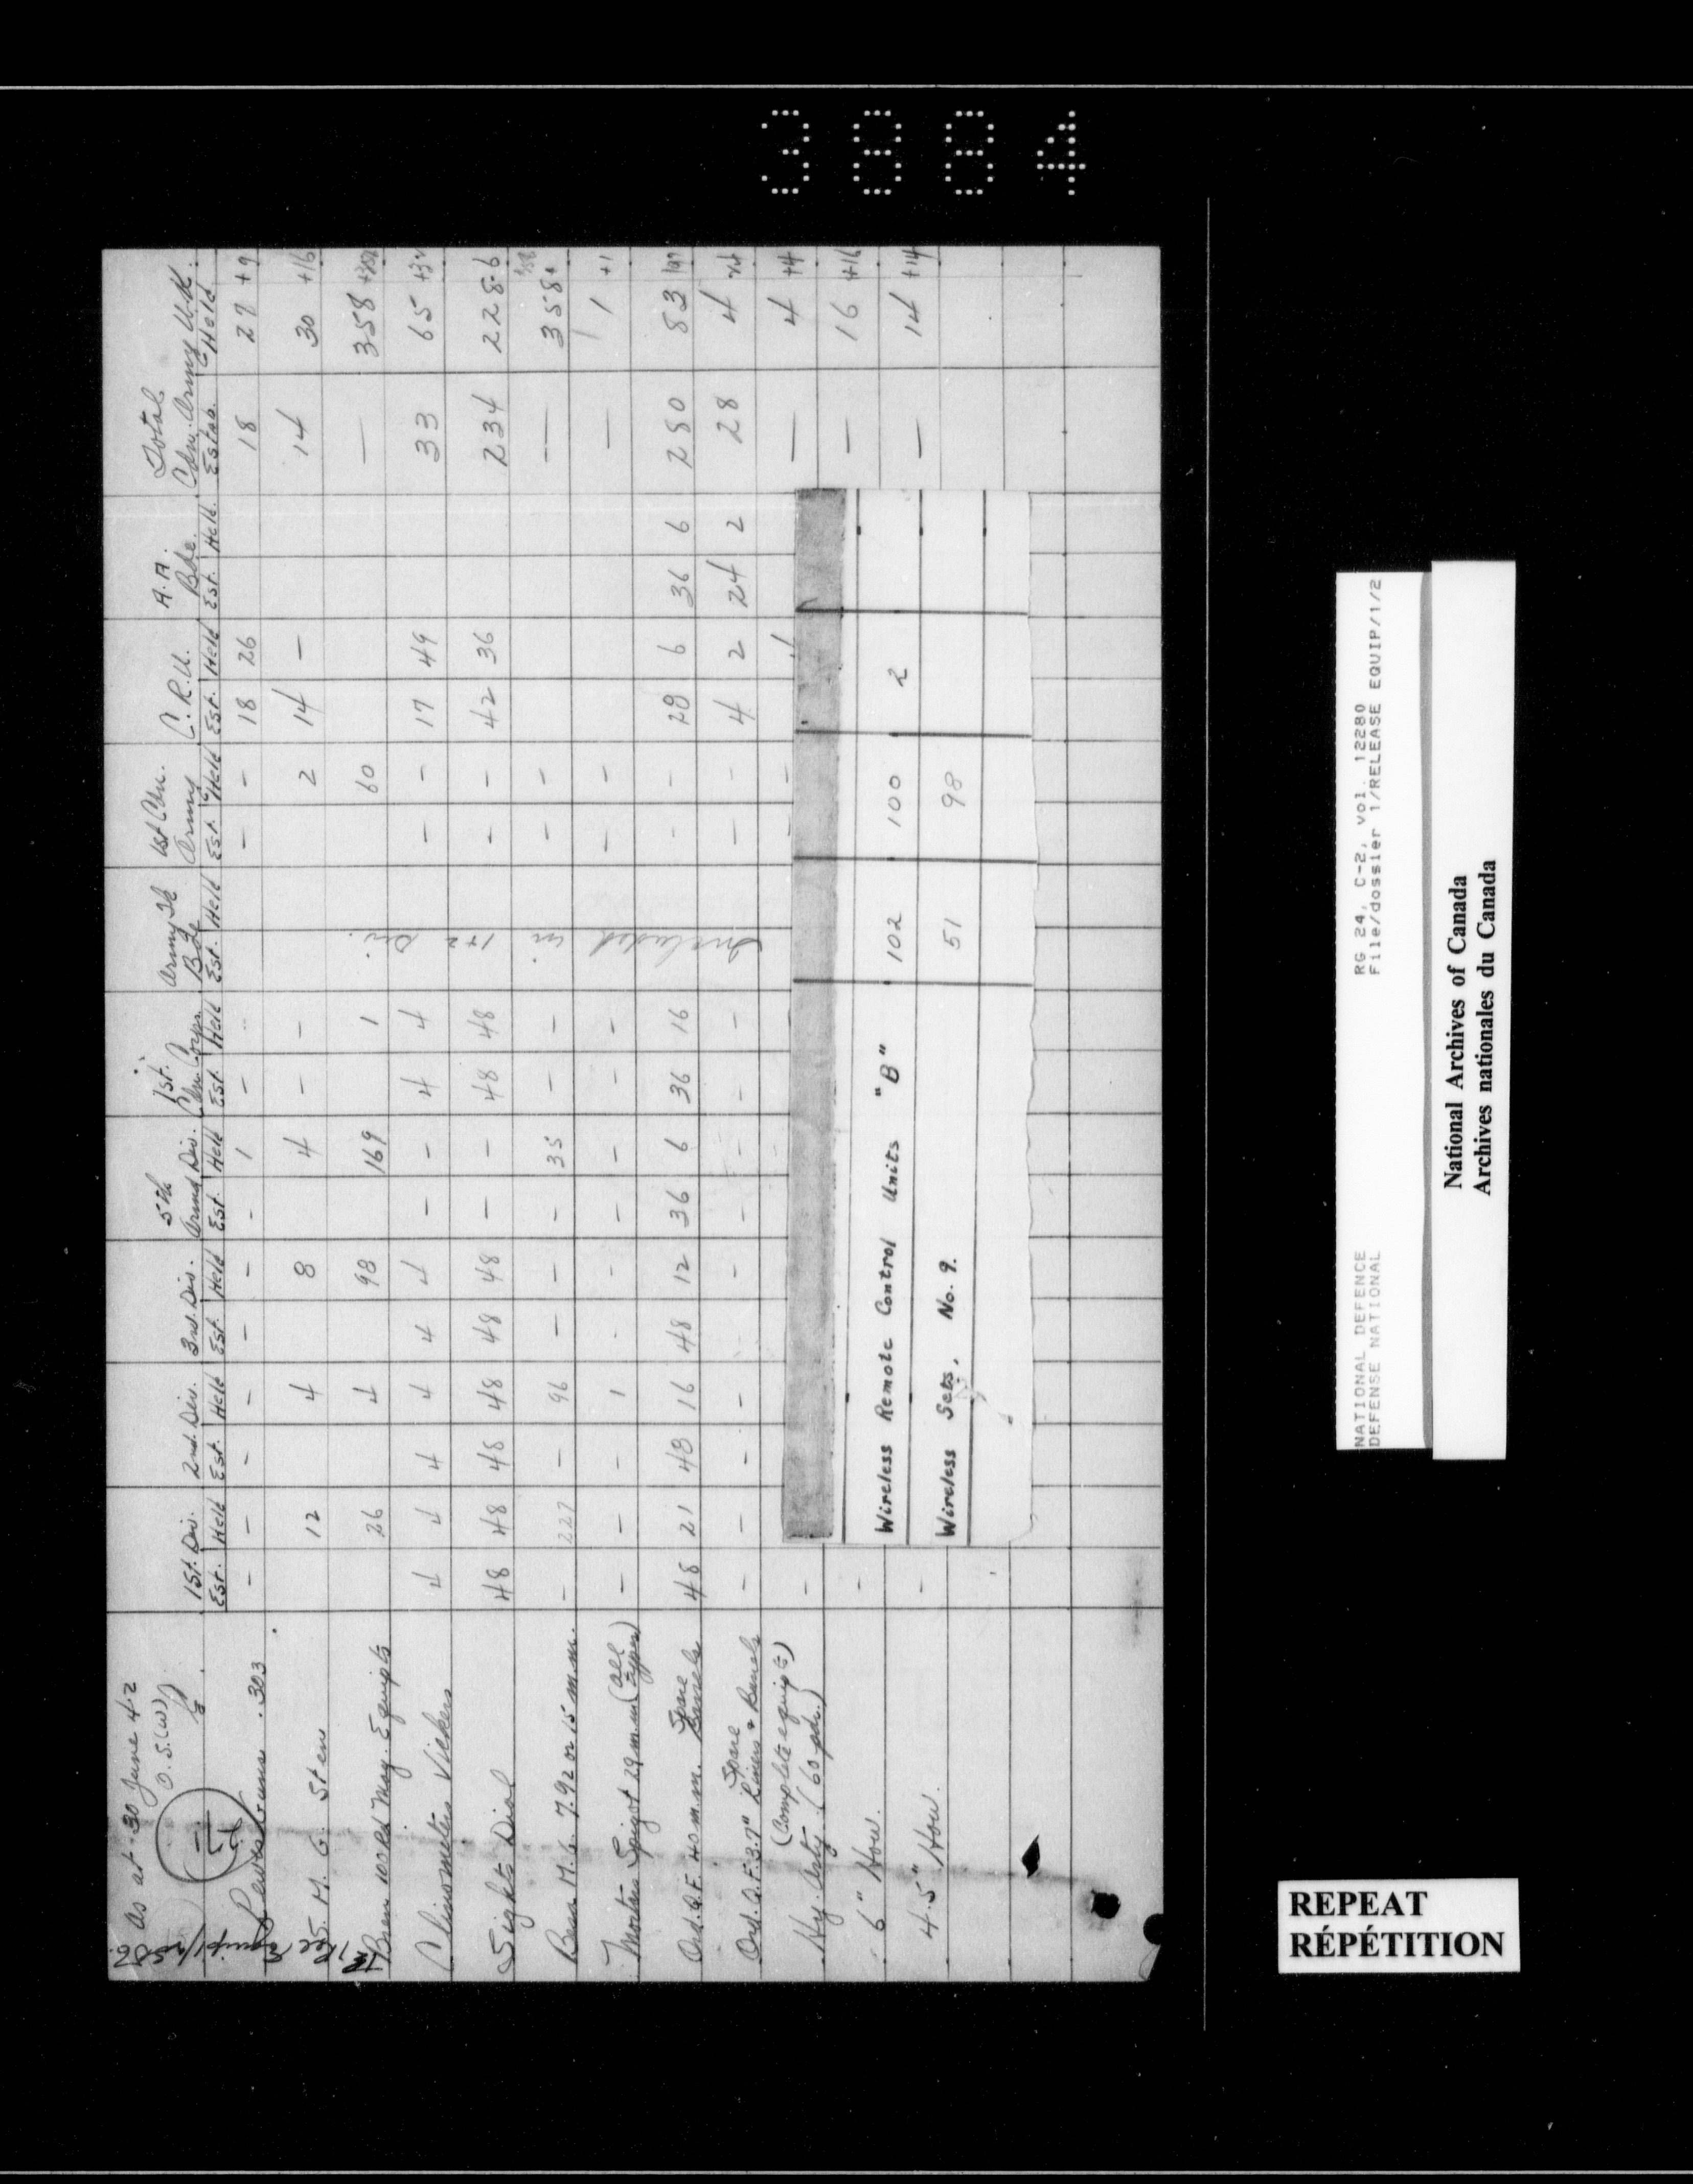 3884
As at 30 June 42
O.S.(W)
1st. Div. 2nd. Div. 3rd. Div. 5th Armd Div. 1st. Cdn. Corps. Army Tk Bde 1st Cdn. Army C.R.U. A.A. Bde. Total Cdn. Army U.K.
Est. Held Est. Held Est. Held Est. Held Est. Held Est. Held Est. Held Est. Held Est. Held. Estab. Held
Lewis Guns .303 - - - - - - - 1 - - - 18 26 18 27 +9
S.M.G. Sten 12 4 8 4 - - 2 14 - 14 30 +16
Bren 100 Rd Mag. Equipts 26 4 98 169 1 60 — 358
Clinometers Vickers 4 4 4 4 4 4 - - 4 4 - - 17 49 33 65
Sights Dial 48 48 48 48 48 48 - - 48 48 - - 42 36 234 228 -6
Besa M.G. 7.92 or 15 m.m. - 227 - 96 - - - 35 - - - - — 358+
Mortars Spigot 29 m.m. (all types) - - - 1 - - - - - - - - — 1 +1
Ord. Q.F. 40 m.m. Spare Barrels 48 21 48 16 48 12 36 6 36 16 - - 28 6 36 6 280 83
Ord. Q.F. 3.7" Spare Liners & Barrels - - - - - - - - - - 4 2 24 2 28 4
Included in 1+2 Div.
Hy. Arty. (60 pdr.) (Complete equipts) - — 4 +4
6" How. - — 16 +16
4.5" How. - — 14 +14
Wireless Remote Control Units "B" 102 100 2
Wireless Sets, No. 9. 51 98
NATIONAL DEFENCE RG 24, C-2, vol. 12280
DEFENSE NATIONAL File/dossier 1/RELEASE EQUIP/1/2
National Archives of Canada
Archives nationales du Canada
REPEAT
RÉPÉTITION